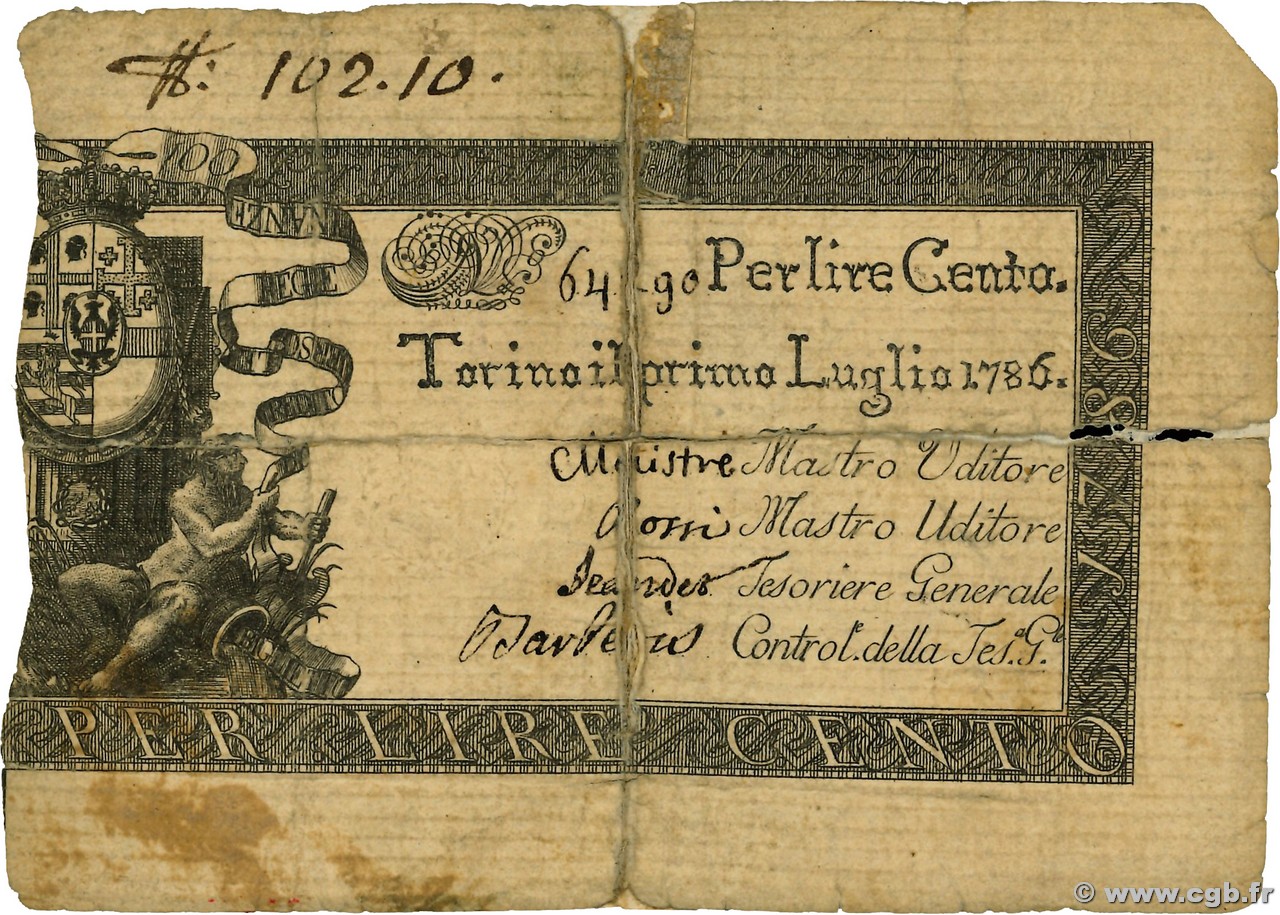 ₶: 102.10.
100
di quà da Monti
FINANZE
64 90 Per lire Cento.
Torino il primo Luglio 1786.
Mastro Uditore
Rossi Mastro Uditore
Tesoriere Generale
Barberis Control.e della Tes.a G.le
1786
PER LIRE CENTO
© www.cgb.fr